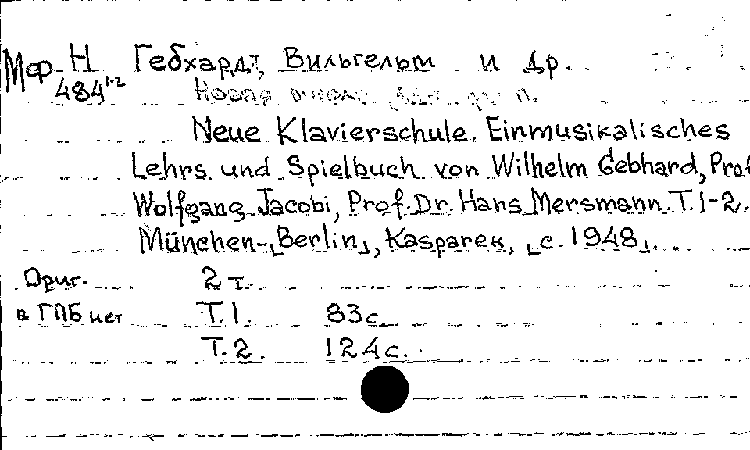 Мф Н Гебхардт, Вильгельм и др.
484¹⁻²
Neue Klavierschule. Einmusikalisches
Lehrs und Spielbuch von Wilhelm Gebhard, Prof
Wolfgang Jacobi, Prof. Dr. Hans Mersmann. T. 1-2.
München-[Berlin], Kasparek, [c. 1948].
Ориг. 2 т.
в ГПБ нет T. 1. 83 с
T. 2. 124 с.